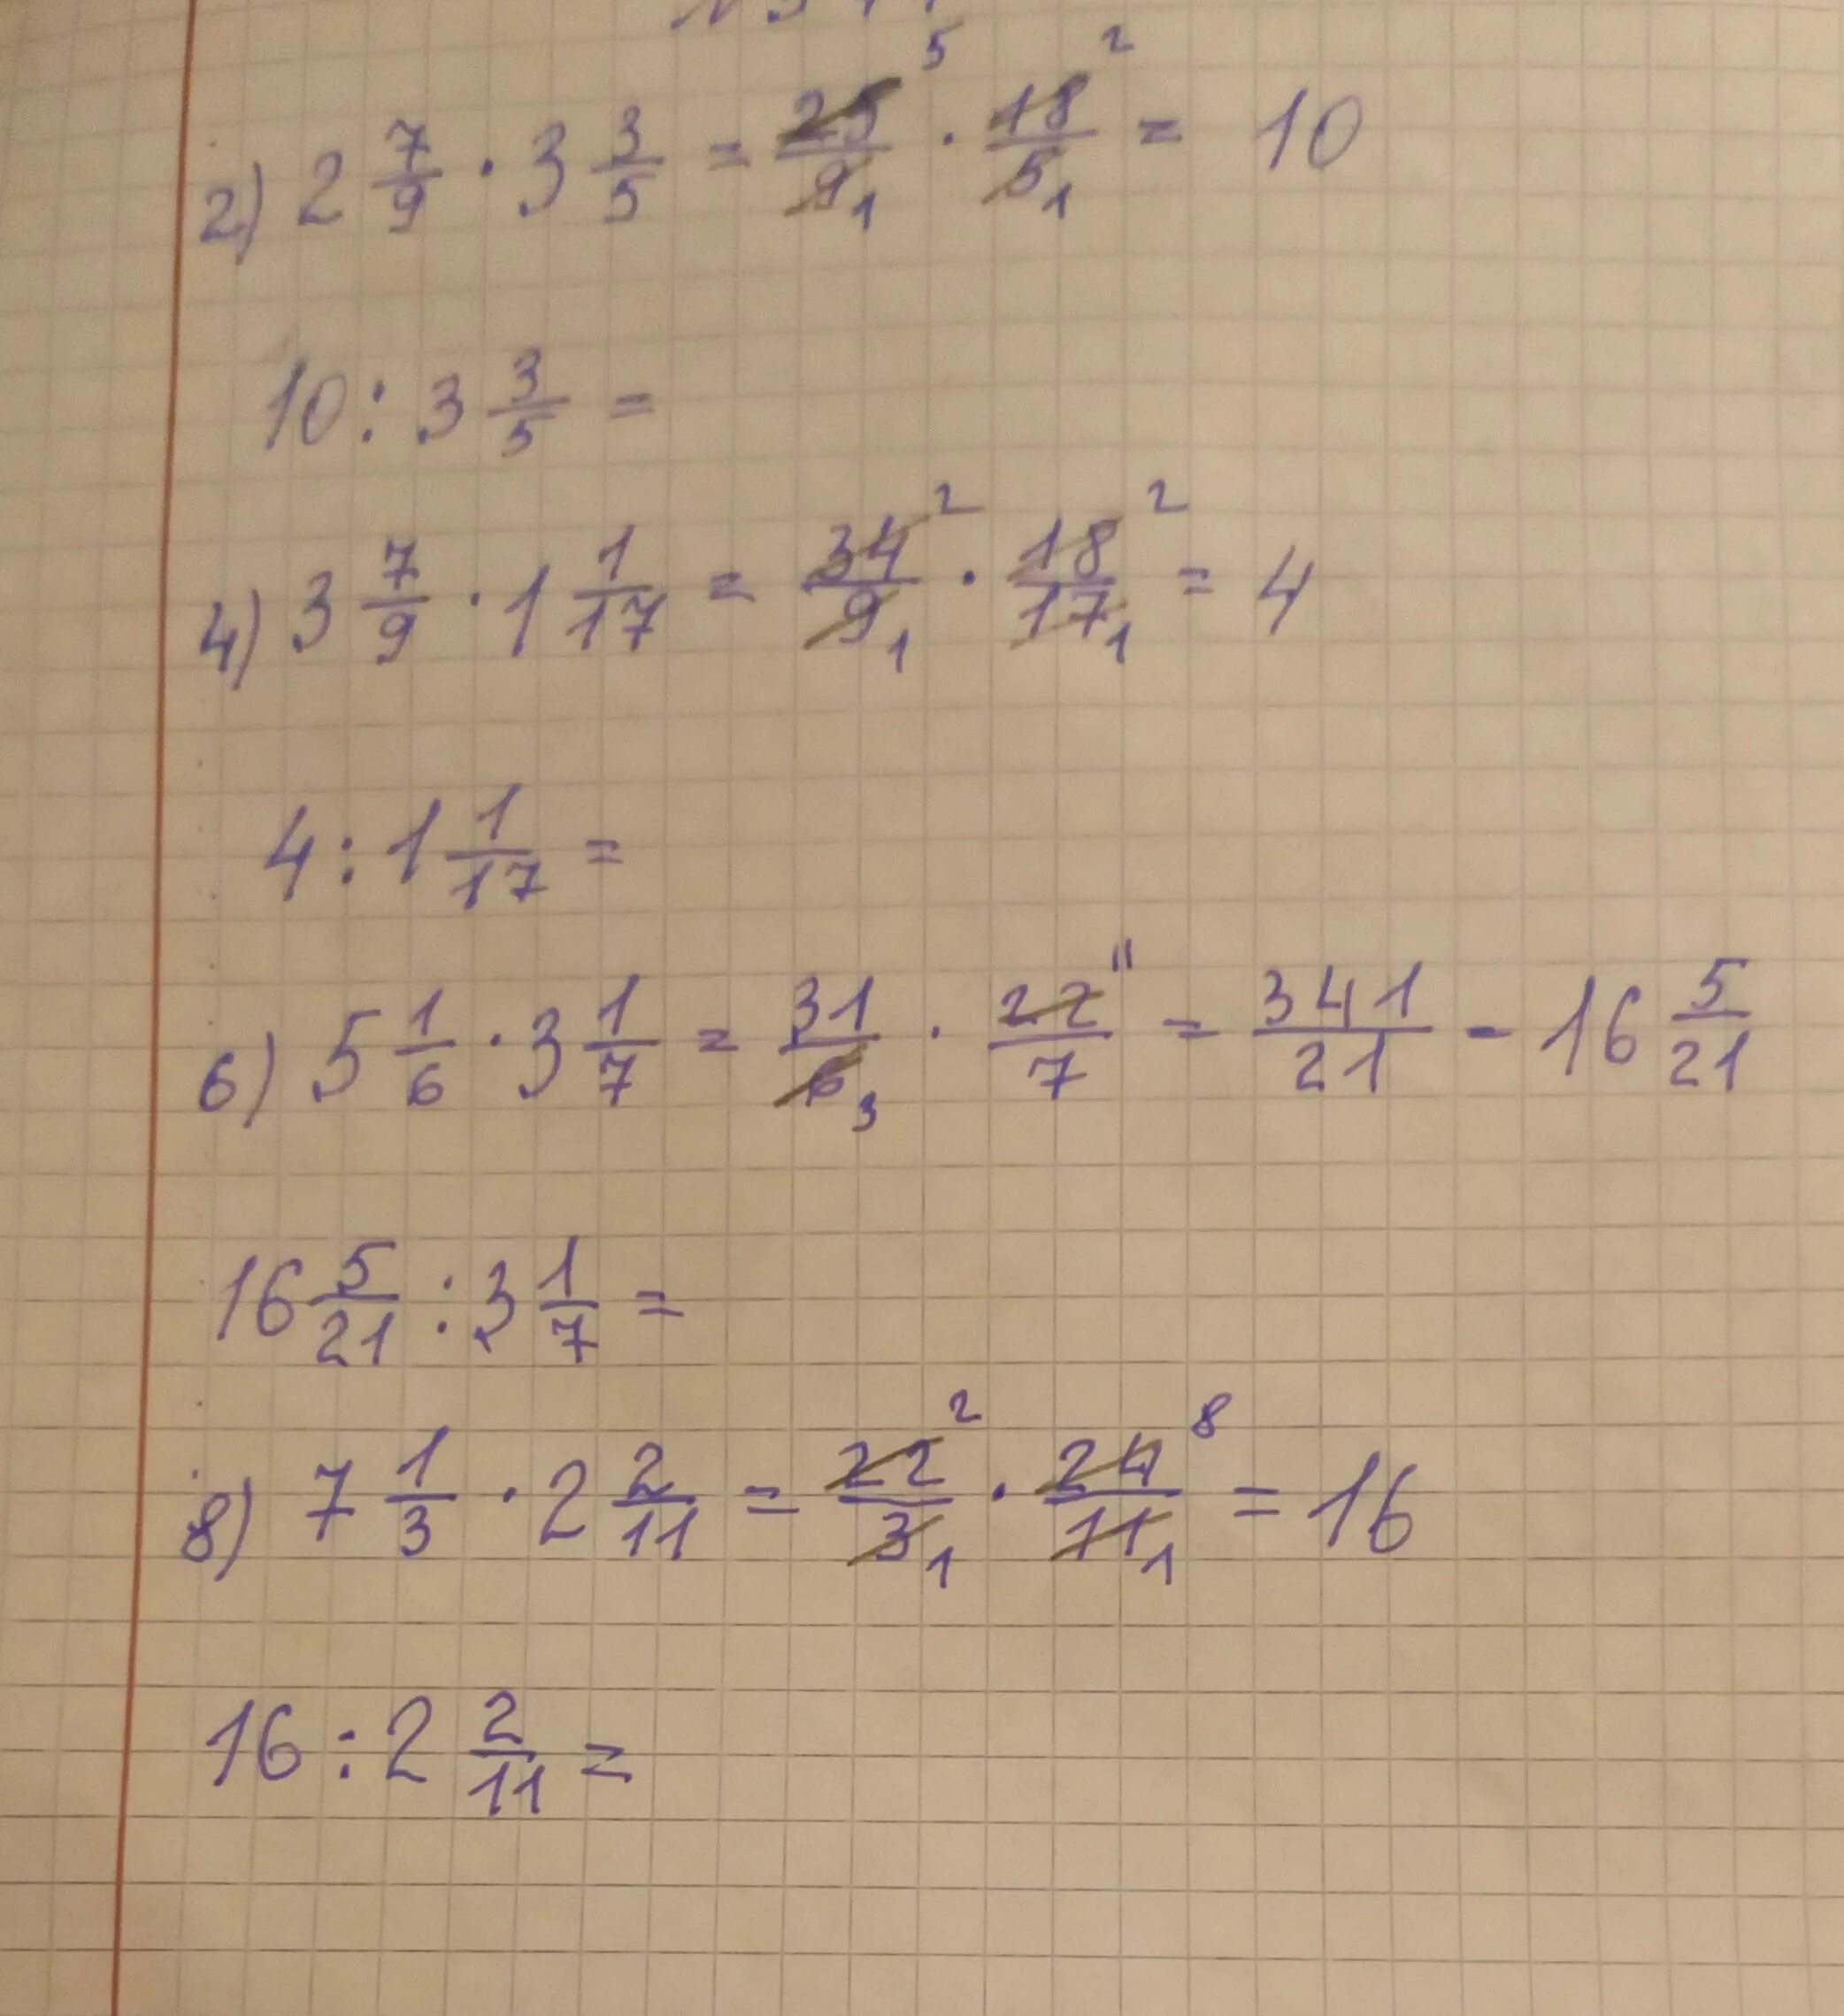 2) 2 7/9 · 3 3/5 = 25/9 5 1 · 18/5 2 1 = 10
10 : 3 3/5 =
4) 3 7/9 · 1 1/17 = 34/9 2 1 · 18/17 2 1 = 4
4 : 1 1/17 =
6) 5 1/6 · 3 1/7 = 31/6 3 · 22/7 11 = 341/21 - 16 5/21
16 5/21 : 3 1/7 =
8) 7 1/3 · 2 2/11 = 22/3 2 1 · 24/11 8 1 = 16
16 : 2 2/11 =